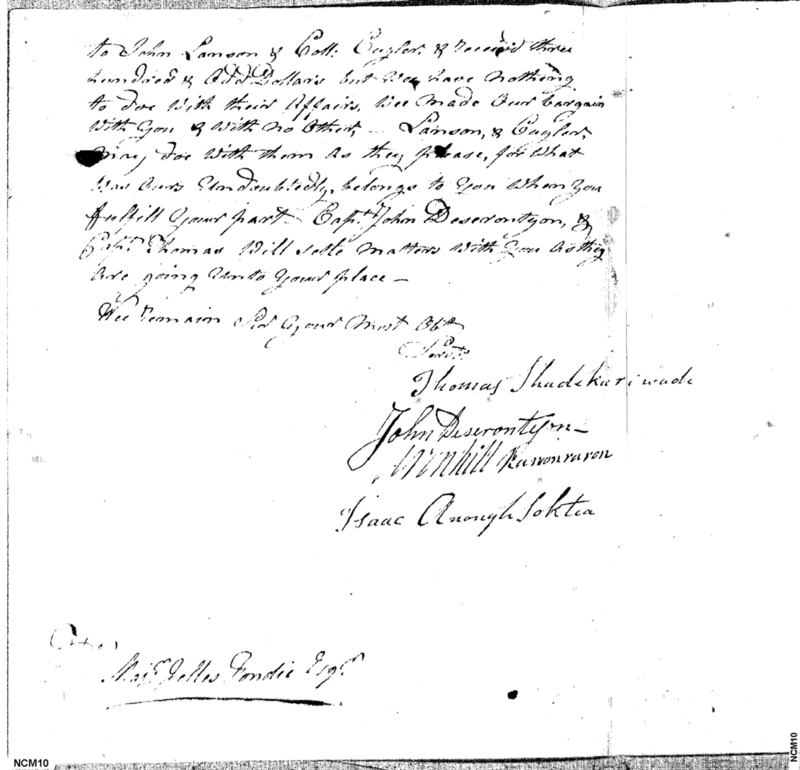 to John Lanson & Coll: Cuyler: & received three
hundred & Odd Dollars but Wee have nothing
to doe With their Affairs, Wee made Our bargain
With You & With no Other, — Lanson, & Cuyler,
may doe With them As they please, for What
Was Ours Undoubtedly, belongs to You When you
fulfill Your part. Capt. John Deserontyon, &
Capt. Thomas Will settle matters With You As they
Are going Unto Your place —
Wee remain Sir Your Most Obt.
Servts.
Thomas Shadekariwade
John Deserontyon —
Kawonraron
Isaac Anonghsoktea
Majr. Jelles Fondie Esqr.
NCM10
NCM10